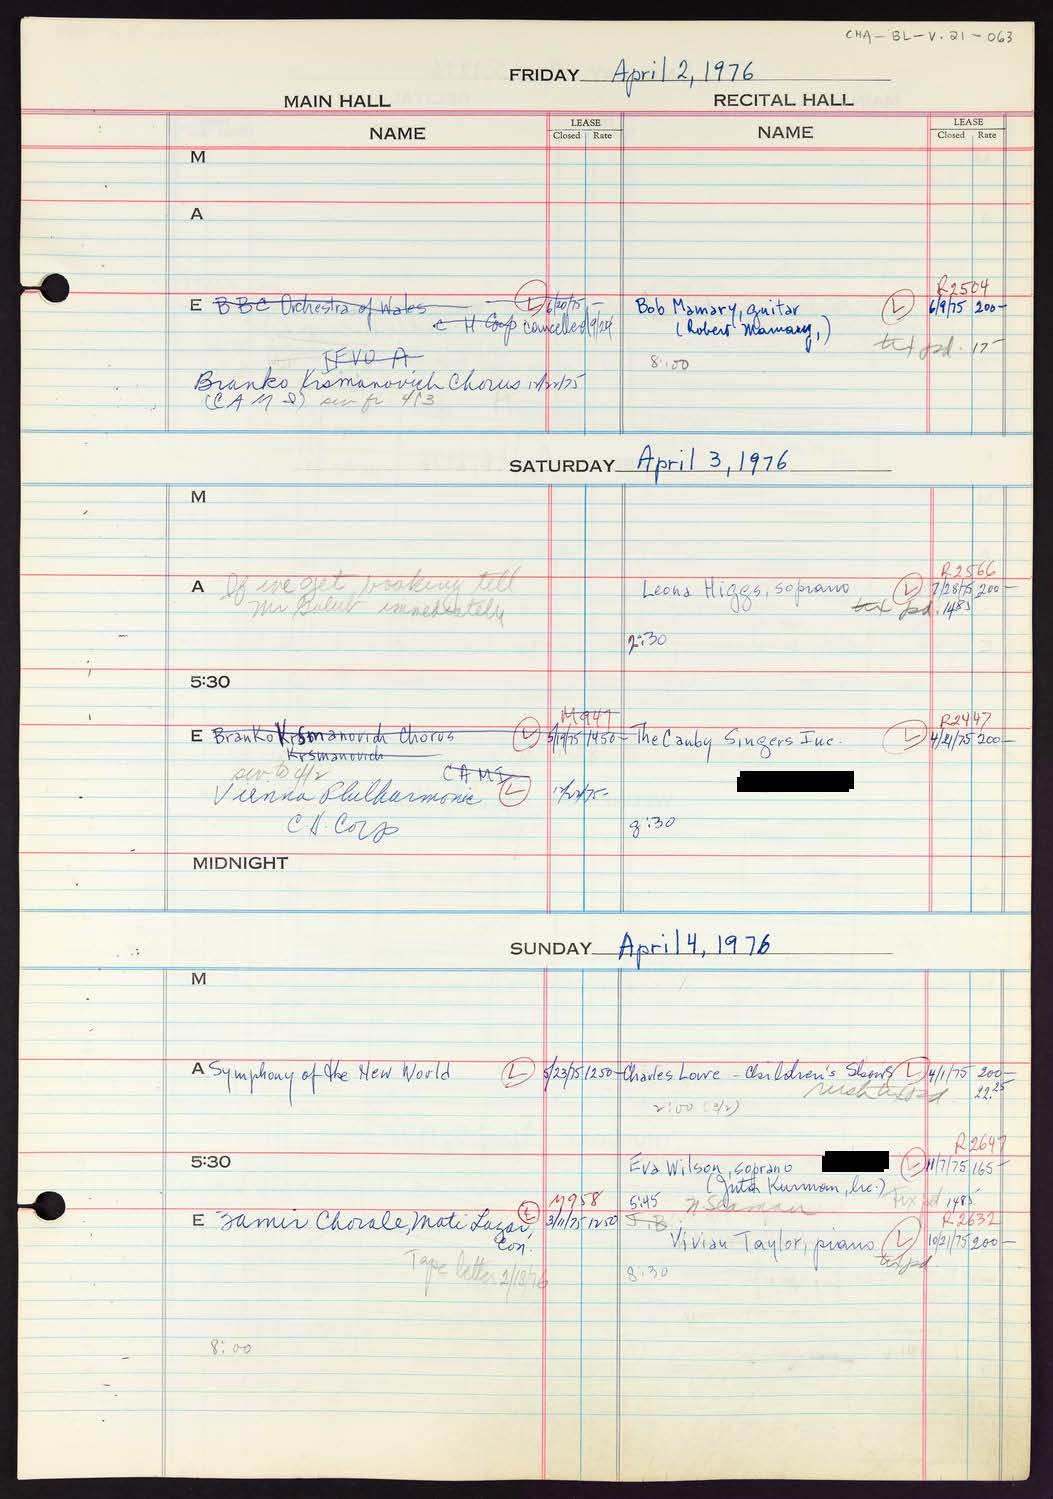 CHA-BL-V.21-063
FRIDAY April 2, 1976
MAIN HALL RECITAL HALL
NAME LEASE NAME LEASE
Closed Rate Closed Rate
M
A
R2504
E BBC Orchestra of Wales L 6/20/75 - Bob Mamary, guitar L 6/9/75 200-
C H Corp cancelled 9/24 (Robert Mamary,)
tix pd. 17-
8:00
Branko Krsmanovich Chorus 12/22/75
(CAMI) see fr 4/3
SATURDAY April 3, 1976
M
R2566
A If we get booking tell Leona Higgs, soprano L 7/28/75 200-
Mr Golub immediately tix pd. 1485
2:30
5:30
M947 R2447
E Branko Krsmanovich Chorus L 5/19/75 1450- The Canby Singers Inc. L 4/21/75 200-
Krsmanovich
see to 4/2 CAMI
Vienna Philharmonic L 12/22/75-
C.H. Corp 8:30
MIDNIGHT
SUNDAY April 4, 1976
M
A Symphony of the New World L 5/23/75 1250- Charles Lowe - Children's Shows L 4/1/75 200-
22.25
2:00
R2647
5:30 Eva Wilson, soprano L 11/7/75 165-
(Jutta Kurman, Inc.) Tix pd 1485
M958 5:45
R2632
E Zamir Chorale, Mati Lazar, L 3/11/75 1250 J.B.
Con. Vivian Taylor, piano L 10/21/75 200-
tix pd.
Tape letter 2/18/76 8:30
8:00